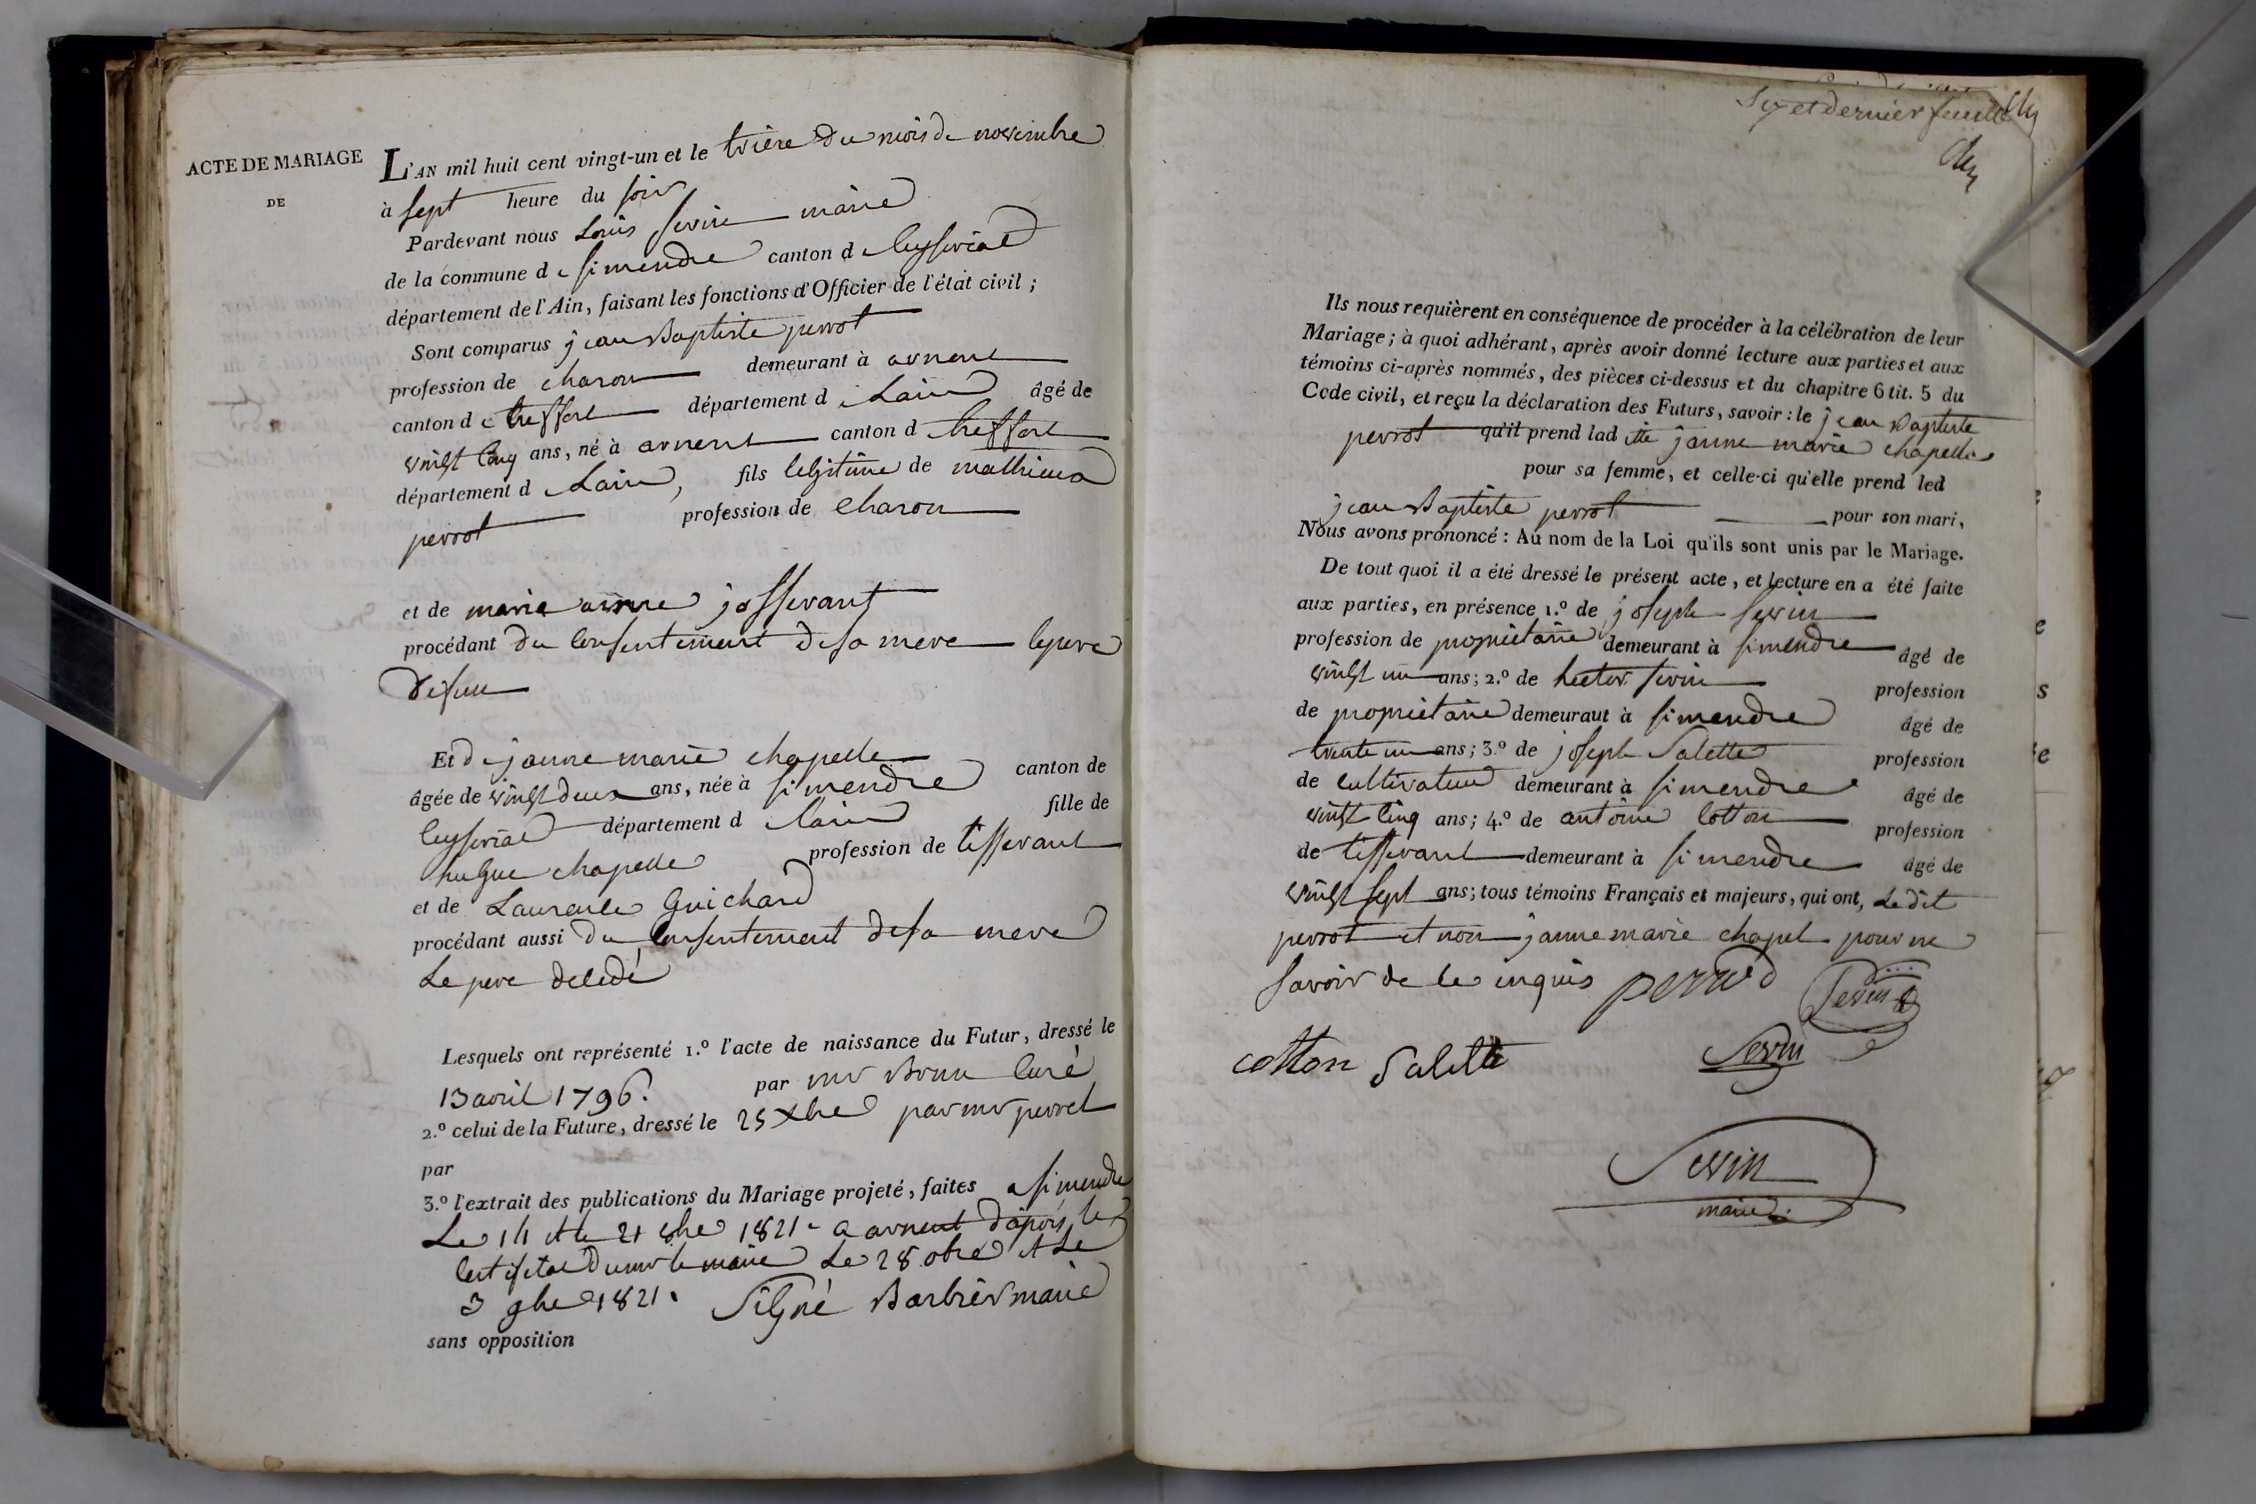 ACTE DE MARIAGE
DE
L'AN mil huit cent vingt-un et le trière du mois de novembre
à sept heure du soir
Pardevant nous Louis Servin maire
de la commune de simendre canton de Ceyseriat
département de l'Ain, faisant les fonctions d'Officier de l'état civil ;
Sont comparus jean Baptiste perrot
profession de charon demeurant à arnent
canton de treffort département d Lain âgé de
vingt cinq ans, né à arnent canton d treffort
département d Lain, fils legitime de mathieu
perrot profession de charon
et de marie anne josserant
procédant du Consentement de sa mere le pere
defun
Et de janne marie chapelle
âgée de vingt deux ans, née à simendre canton de
Ceyseriat département d Lain fille de
hugue chapelle profession de tisserant
et de Laurence Guichard
procédant aussi du Consentement de sa mere
Le pere decedé
Lesquels ont représenté 1.º l'acte de naissance du Futur, dressé le
13 avril 1796. par mr curé
2.º celui de la Future, dressé le 25 Xbre par mr perret
par
3.º l'extrait des publications du Mariage projeté, faites a simendre
Le 14 et le 21 8bre 1821 a arnent dapois le
Certificat du mr le maire Le 28 obre et Le
3 gbre 1821. Signé Barbier maire
sans opposition
et dernier feuillet
Ils nous requièrent en conséquence de procéder à la célébration de leur
Mariage ; à quoi adhérant, après avoir donné lecture aux parties et aux
témoins ci-après nommés, des pièces ci-dessus et du chapitre 6 tit. 5 du
Code civil, et reçu la déclaration des Futurs, savoir : le jean Baptiste
perrot qu'il prend lad ite janne marie chapelle
pour sa femme, et celle-ci qu'elle prend led
jean Baptiste perrot pour son mari,
Nous avons prononcé : Au nom de la Loi qu'ils sont unis par le Mariage.
De tout quoi il a été dressé le présent acte, et lecture en a été faite
aux parties, en présence 1.º de joseph Servin
profession de propriétaire demeurant à simendre âgé de
vingt un ans ; 2.º de hector servin profession
de propriétaire demeuraut à simendre âgé de
trente un ans ; 3.º de joseph Salette profession
de cultivateur demeurant à simendre âgé de
vingt cinq ans ; 4.º de antoine Cotton profession
de tisserant demeurant à simendre âgé de
vingt sept ans ; tous témoins Français et majeurs, qui ont, Le dit
perrot et non janne marie chapel pour ne
savoir de ce enquis perrod Servin
cotton Salette Servin
Servin
maire